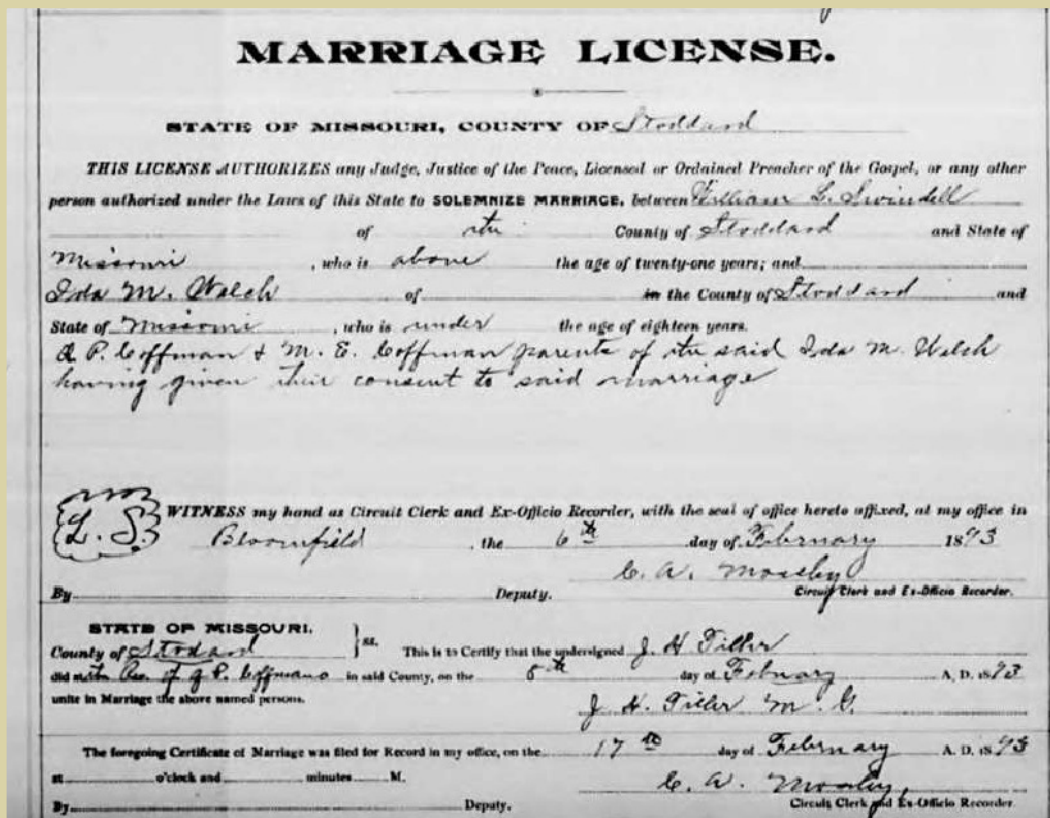 MARRIAGE LICENSE.
STATE OF MISSOURI, COUNTY OF Stoddard
THIS LICENSE AUTHORIZES any Judge, Justice of the Peace, Licensed or Ordained Preacher of the Gospel, or any other
person authorized under the Laws of this State to SOLEMNIZE MARRIAGE, between William L. Swindell
of the County of Stoddard and State of
Missouri, who is above the age of twenty-one years; and
Ida M. Welch of in the County of Stoddard and
State of Missouri, who is under the age of eighteen years.
P. Coffman & M. E. Coffman parents of the said Ida M. Welch
having given their consent to said marriage
L. S. WITNESS my hand as Circuit Clerk and Ex-Officio Recorder, with the seal of office hereto affixed, at my office in
Bloomfield, the 6th day of February 1893
C. A. Mosby
By Deputy. Circuit Clerk and Ex-Officio Recorder.
STATE OF MISSOURI,
County of Stodard } ss. This is to Certify that the undersigned J. H. Tiller
did at the Res. of P. Coffmans in said County, on the 8th day of Febuary A. D. 1893
unite in Marriage the above named persons.
J. H. Tiller M. G.
The foregoing Certificate of Marriage was filed for Record in my office, on the 17th day of February A. D. 1893
at o'clock and minutes M.
C. A. Mosby,
By Deputy. Circuit Clerk and Ex-Officio Recorder.